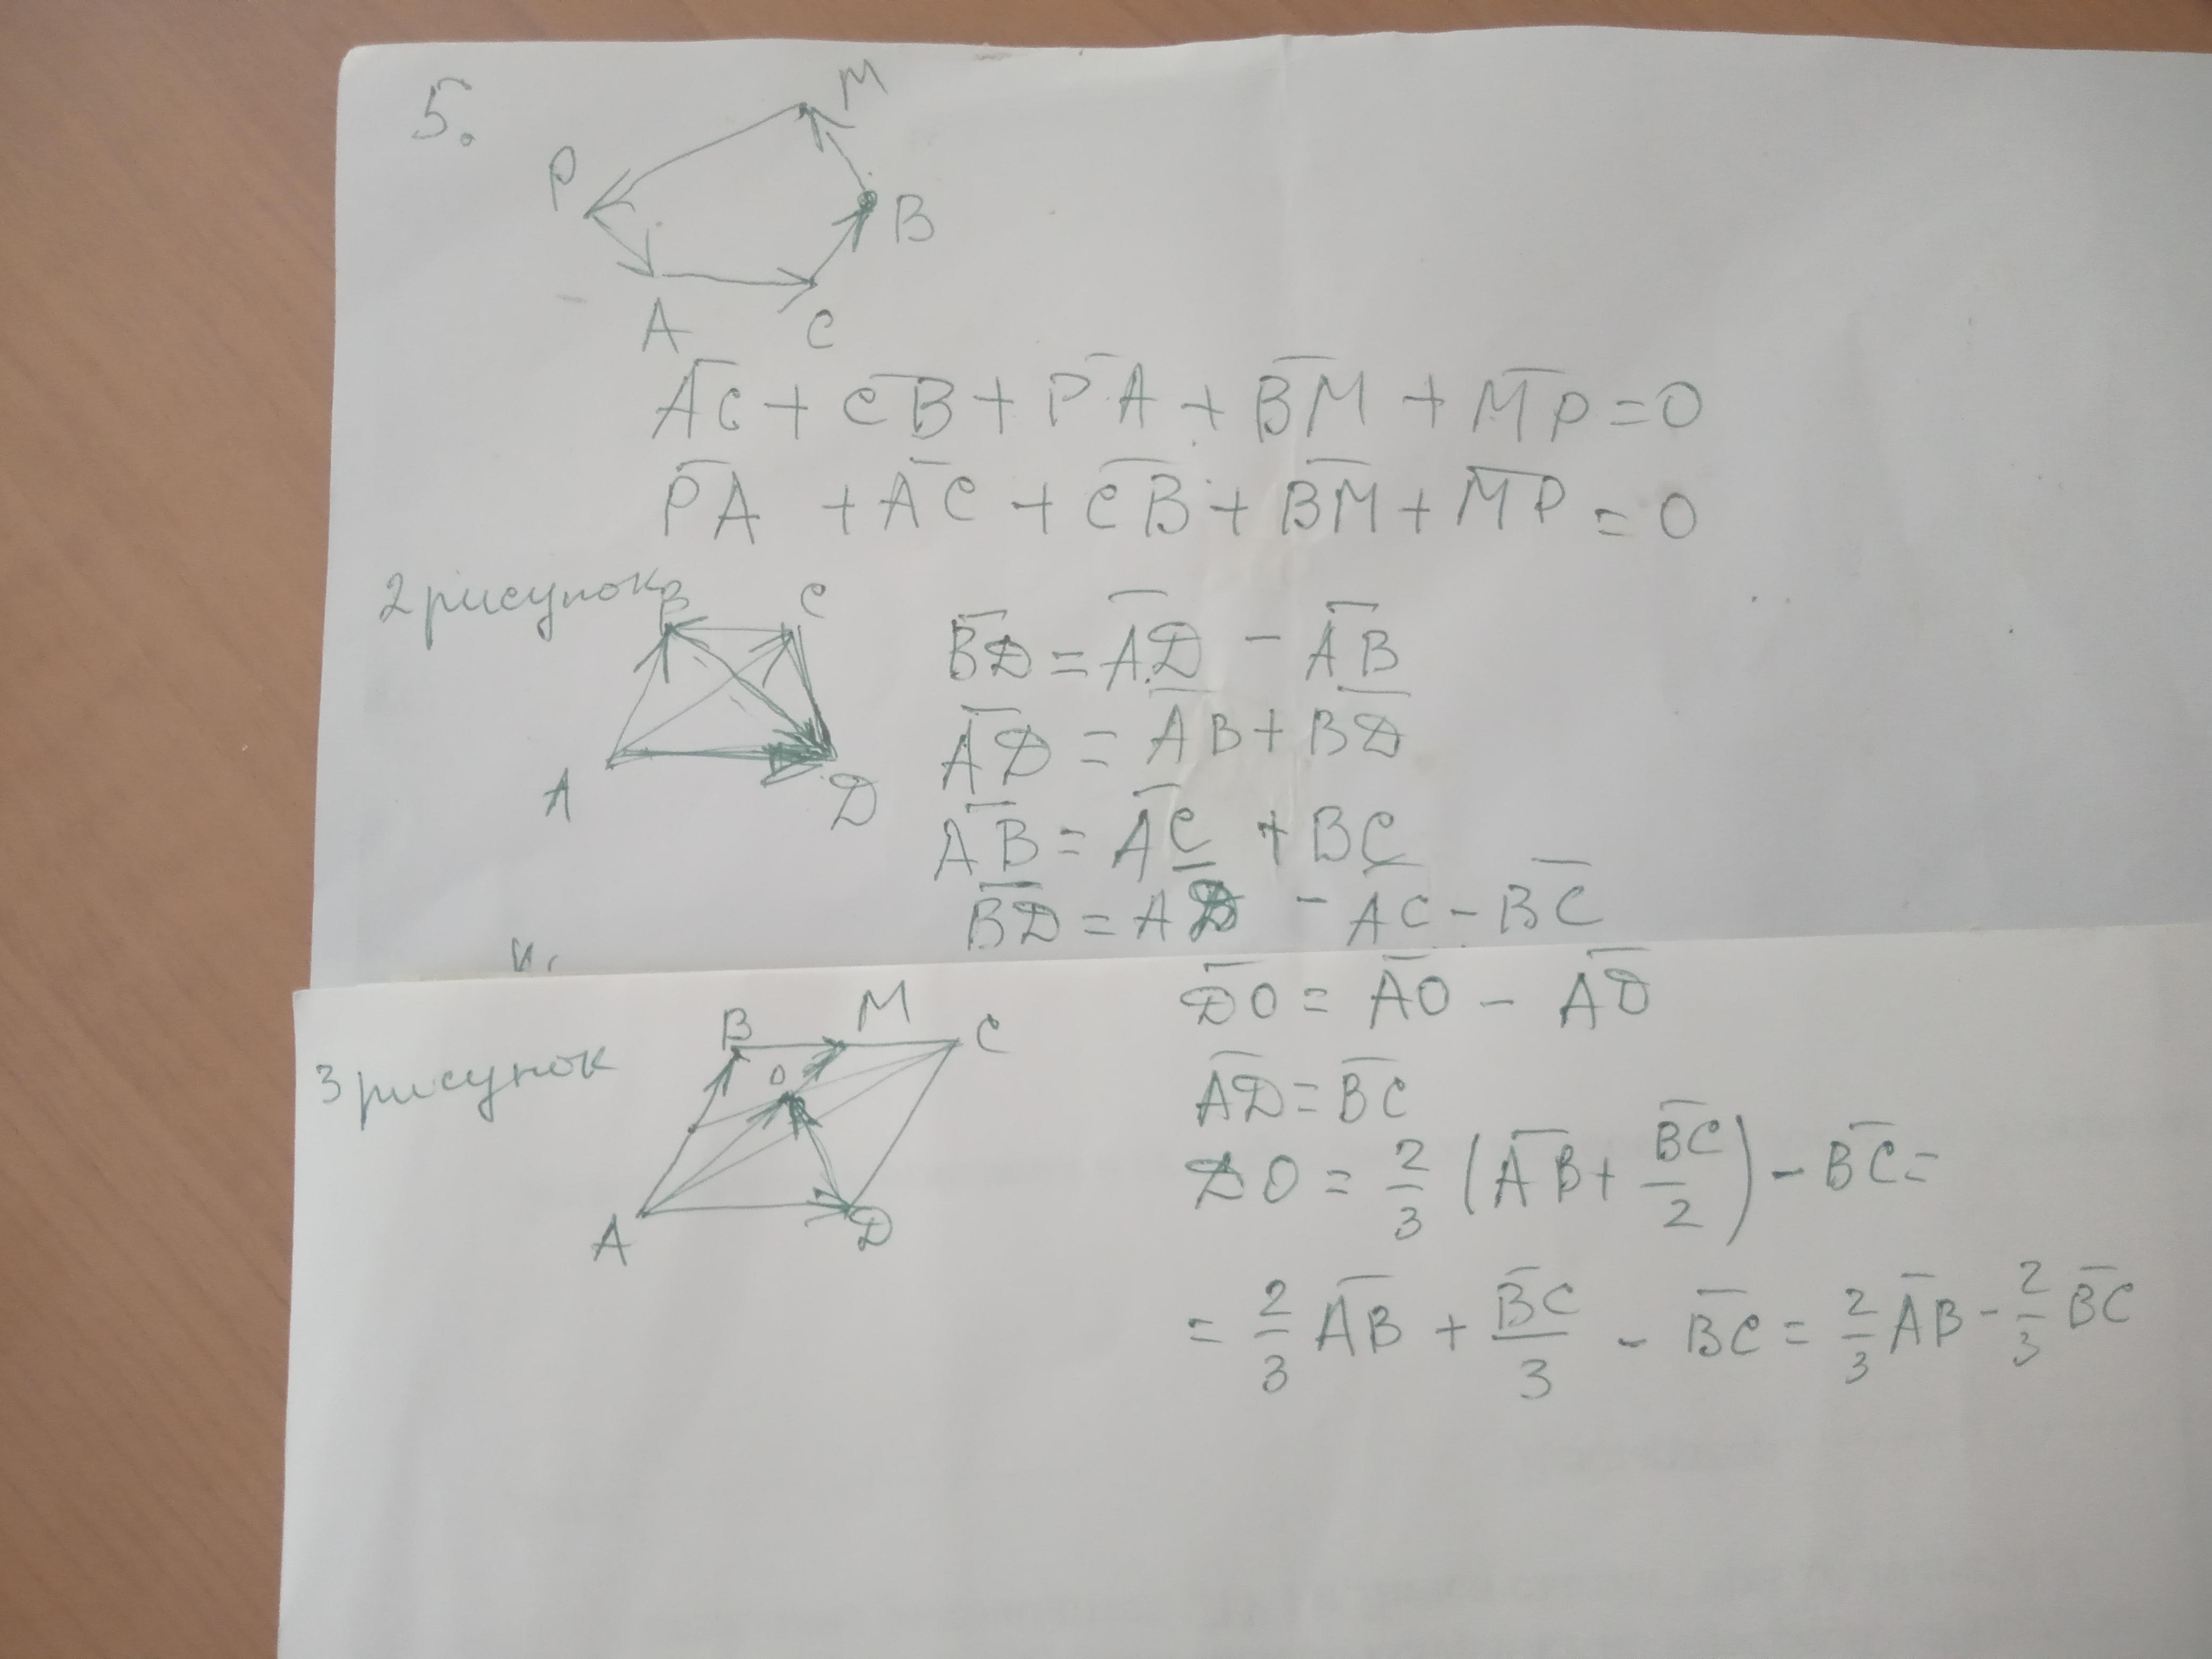 5.
M
P
B
A
C
A̅C̅ + C̅B̅ + P̅A̅ + B̅M̅ + M̅P̅ = 0
P̅A̅ + A̅C̅ + C̅B̅ + B̅M̅ + M̅P̅ = 0
2 рисунок
B
C
A
D
B̅D̅ = A̅D̅ - A̅B̅
A̅D̅ = A̅B̅ + B̅D̅
A̅B̅ = A̅C̅ + BC
B̅D̅ = AD - A̅C̅ - B̅C̅
3 рисунок
B
M
C
O
A
D
D̅O̅ = A̅O̅ - A̅D̅
A̅D̅ = B̅C̅
DO = 2/3 (A̅B̅ + B̅C̅/2) - B̅C̅ =
= 2/3 A̅B̅ + B̅C̅/3 - B̅C̅ = 2/3 A̅B̅ - 2/3 B̅C̅